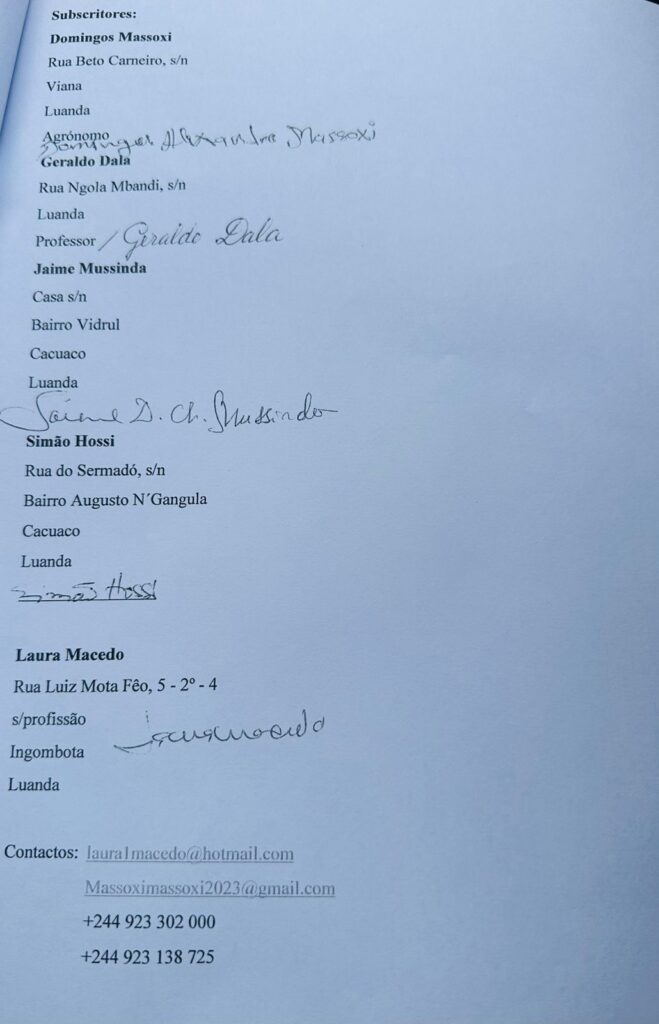 Subscritores:
Domingos Massoxi
Rua Beto Carneiro, s/n
Viana
Luanda
Agrónomo
Domingos Alexandre Massoxi
Geraldo Dala
Rua Ngola Mbandi, s/n
Luanda
Professor / Geraldo Dala
Jaime Mussinda
Casa s/n
Bairro Vidrul
Cacuaco
Luanda
Jaime D. Ch. Mussinda
Simão Hossi
Rua do Sermadó, s/n
Bairro Augusto N´Gangula
Cacuaco
Luanda
Simão Hossi
Laura Macedo
Rua Luiz Mota Fêo, 5 - 2º - 4
s/profissão
Ingombota
Luanda
Contactos: laura1macedo@hotmail.com
Massoximassoxi2023@gmail.com
+244 923 302 000
+244 923 138 725